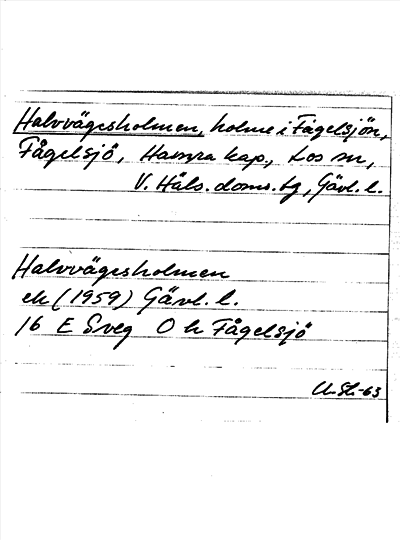 Halvvägesholmen, holme i Fågelsjön,
Fågelsjö, Hamra kap., Los sn,
V. Häls. doms. tg, Gävl. l.
Halvvägesholmen
ek (1959) Gävl. l.
16 E Sveg O h Fågelsjö
-63